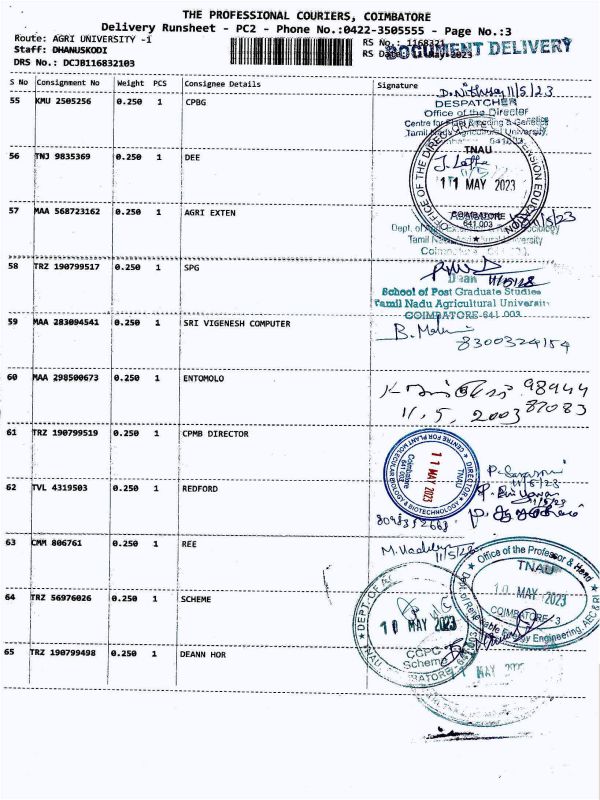 THE PROFESSIONAL COURIERS, COIMBATORE
Delivery Runsheet - PC2 - Phone No.:0422-3505555 - Page No.:3
Route: AGRI UNIVERSITY -1
Staff: DHANUSKODI
DRS No.: DCJB116832103
RS No.: 1168321
DOCUMENT DELIVERY
S No Consignment No Weight PCS Consignee Details Signature
55 KMU 2505256 0.250 1 CPBG
D. Nithya 11/5/23
DESPATCHER
Office of the Director
Centre for Plant Breeding & Genetics
Tamil Nadu Agricultural University,
56 TNJ 9835369 0.250 1 DEE
OFFICE OF THE DIRECTORATE EXTENSION EDUCATION
TNAU
11 MAY 2023
COIMBATORE
641 003
57 MAA 568723162 0.250 1 AGRI EXTEN
11/5/23
Tamil Nadu Agricultural University
58 TRZ 190799517 0.250 1 SPG
Dean
School of Post Graduate Studies
Tamil Nadu Agricultural University
COIMBATORE-641 003
59 MAA 283094541 0.250 1 SRI VIGENESH COMPUTER
8300324154
60 MAA 298500673 0.250 1 ENTOMOLO
98944
87083
11.5.2003
61 TRZ 190799519 0.250 1 CPMB DIRECTOR
DIRECTOR
CENTRE FOR PLANT MOLECULAR BIOLOGY & BIOTECHNOLOGY
TNAU
11 MAY 2023
Coimbatore
641 003
11/5/23
62 TVL 4319503 0.250 1 REDFORD
63 CMM 806761 0.250 1 REE
11/5/23
Office of the Professor & Head
TNAU
10 MAY 2023
COIMBATORE-3
Dept. of Renewable Energy Engineering, AEC & RI
64 TRZ 56976026 0.250 1 SCHEME
10 MAY 2023
CCPC
Scheme
TNAU
65 TRZ 190799498 0.250 1 DEANN HOR